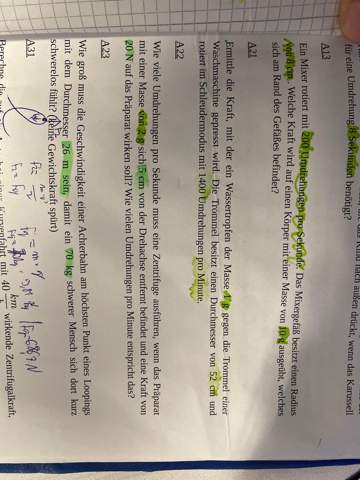 für eine Umdrehung 8 Sekunden benötigt?
A13
Ein Mixer rotiert mit 200 Umdrehungen pro Sekunde. Das Mixergefäß besitzt einen Radius
von 8 cm. Welche Kraft wird auf einen Körper mit einer Masse von 10 g ausgeübt, welches
sich am Rand des Gefäßes befindet?
A21
Ermittle die Kraft, mit der ein Wassertropfen der Masse 1 g gegen die Trommel einer
Waschmaschine gepresst wird. Die Trommel besitzt einen Durchmesser von 52 cm und
rotiert im Schleudermodus mit 1400 Umdrehungen pro Minute.
A22
Wie viele Umdrehungen pro Sekunde muss eine Zentrifuge ausführen, wenn das Präparat
mit einer Masse von 2 g sich 5 cm von der Drehachse entfernt befindet und eine Kraft von
20 N auf das Präparat wirken soll? Wie vielen Umdrehungen pro Minute entspricht das?
A23
Wie groß muss die Geschwindigkeit einer Achterbahn am höchsten Punkt eines Loopings
mit dem Durchmesser 26 m sein, damit ein 70 kg schwerer Mensch sich dort kurz
schwerelos fühlt? (keine Gewichtskraft spürt)
A31
mit 40 km wirkende Zentrifugalkraft,